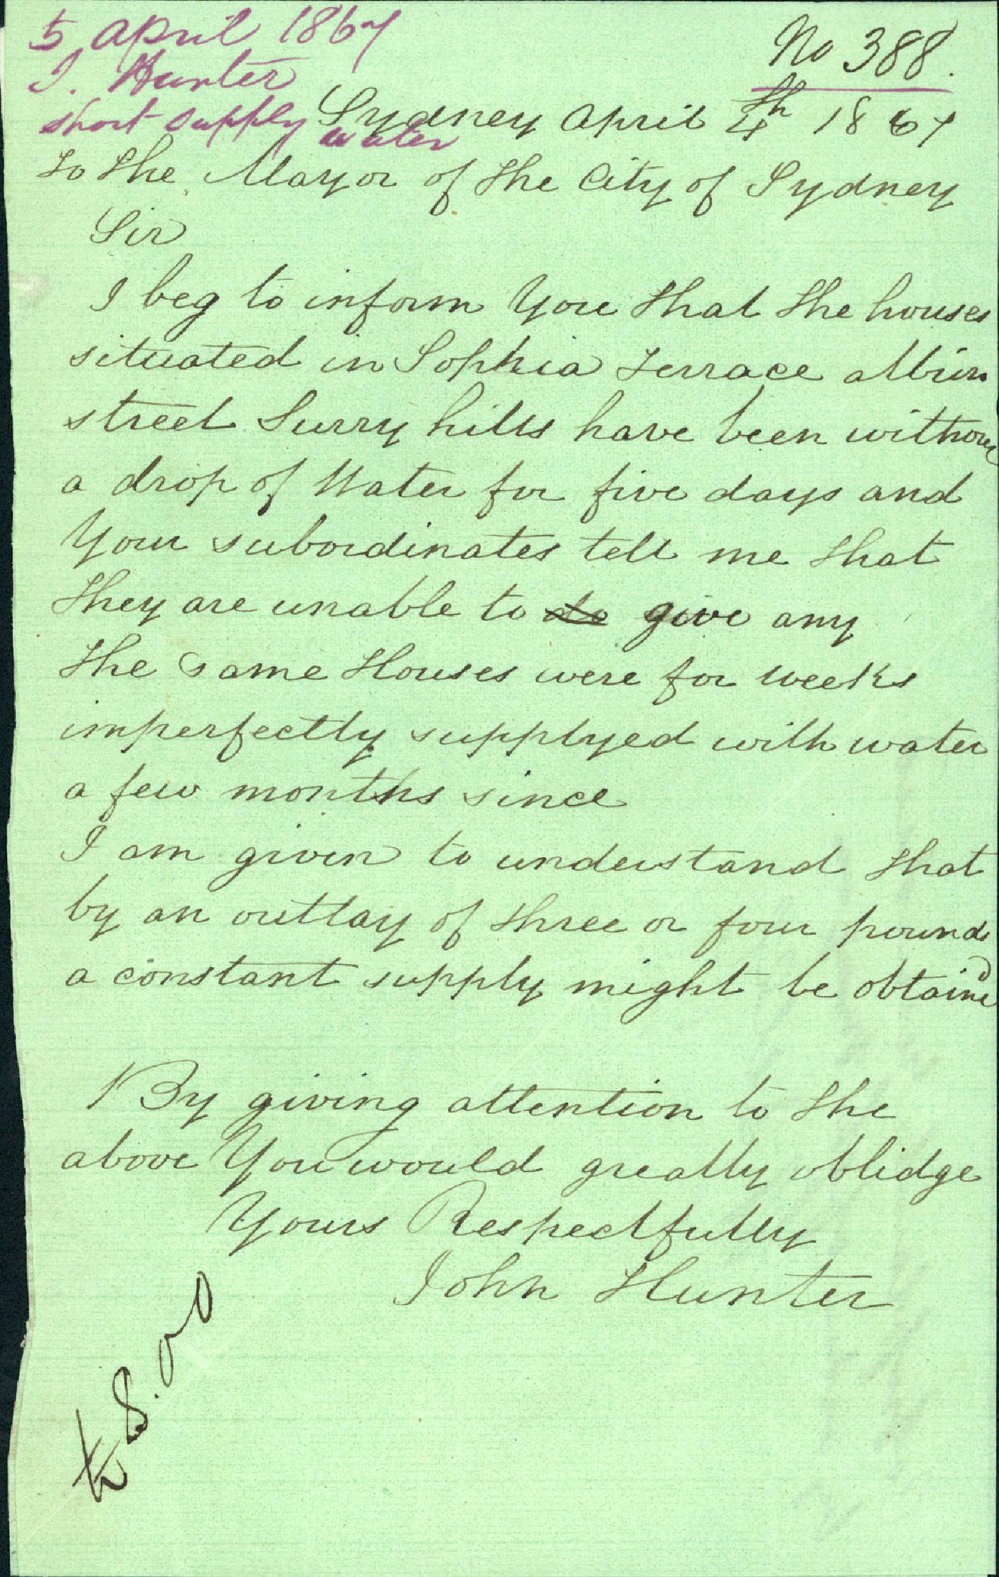 5 April 1867
J. Hunter
short supply water
No 388.
Sydney April 4th 1867
To the Mayor of the City of Sydney
Sir
I beg to inform You that the houses
situated in Sophia Terrace Albion
street Surry hills have been without
a drop of Water for five days and
Your subordinates tell me that
they are unable to do give any
The same Houses were for weeks
imperfectly supplyed with water
a few months since
I am given to understand that
by an outlay of three or four pounds
a constant supply might be obtained
By giving attention to the
above You would greatly oblidge
Yours Respectfully
John Hunter